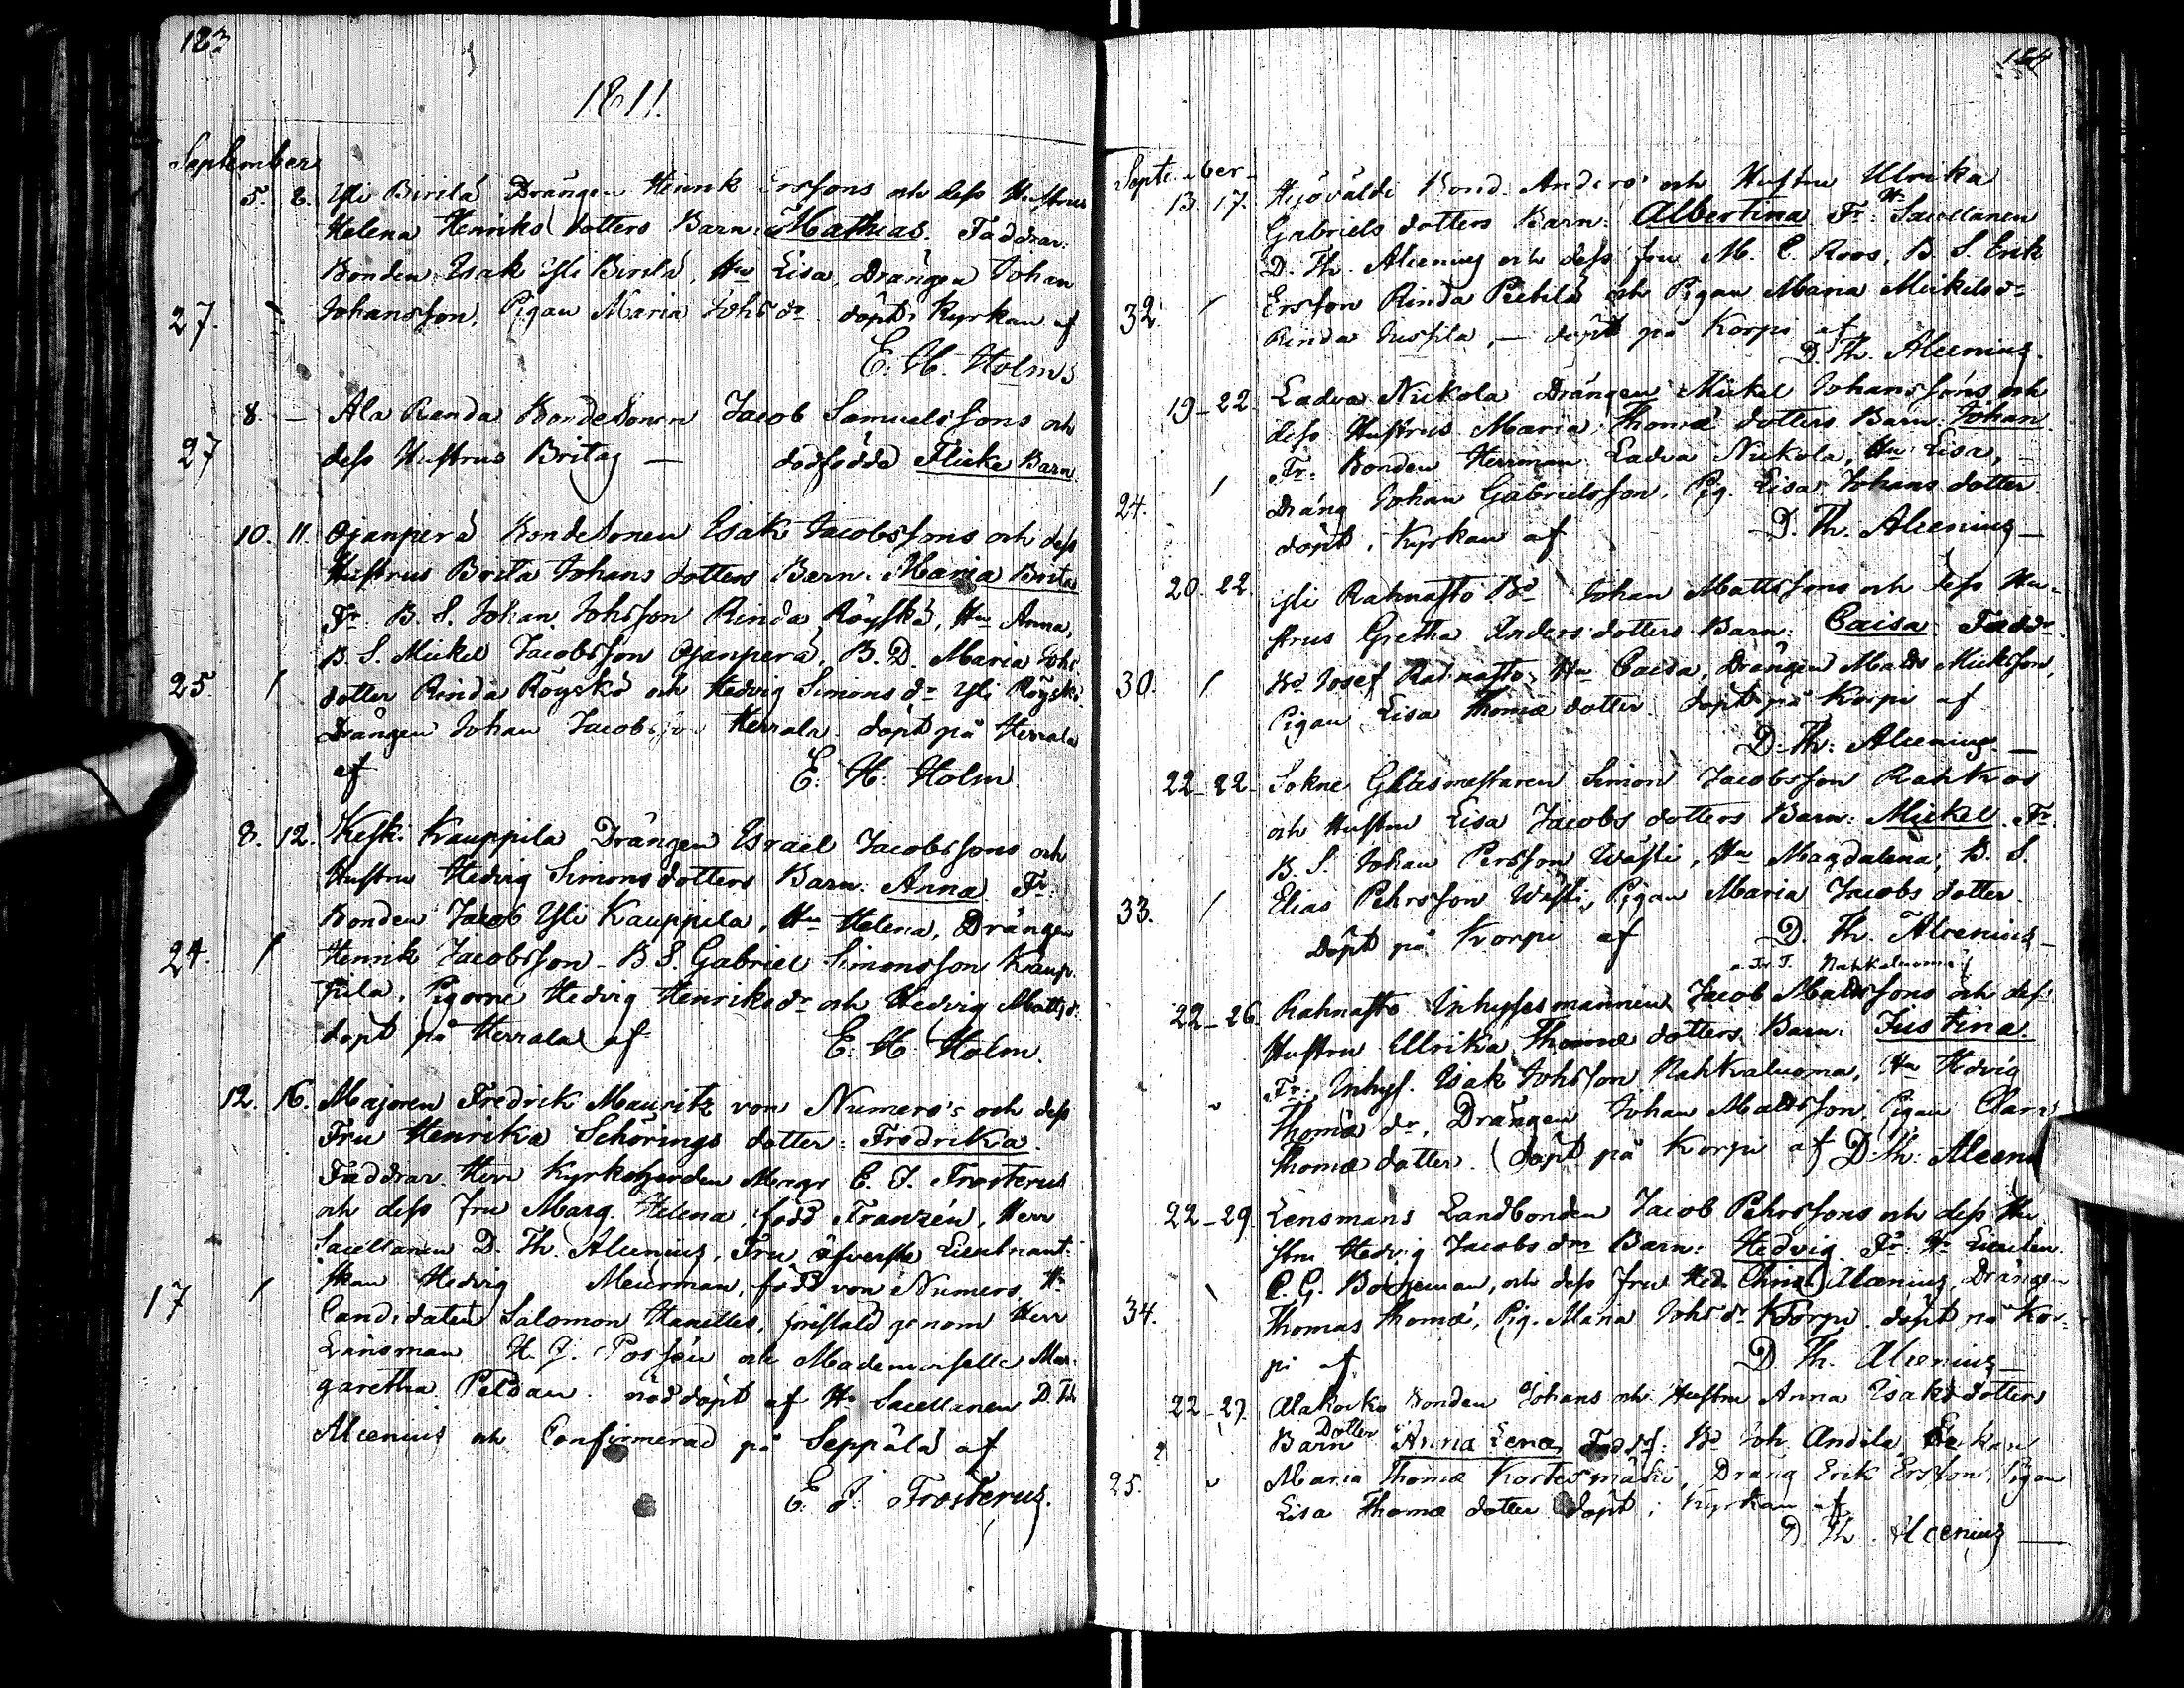 183
1811.
September
5. 8. Yli Birilä Drängen Henrik Ersssons och dess Hustrus
Helena Henriks dotters Barn: Mathias. Faddrar:
Bonden Isak Yli Birilä, Hu Lisa, Drängen Johan
27. Johansson, Pigan Maria Johsdr döpt i Kyrkan af
E. H. Holm
8. — Ala Renda Bondesonen Jacob Samuelssons och
27 dess Hustrus Britas — dödfödde Flicke Barn
10. 11. Ojanperä Bondesonen Isak Jacobssons och dess
Hustrus Brita Johans dotters Barn: Maria Brita
Fr: B. S. Johan Johsson Rinda Röyskä, Hu Anna,
B. S. Mickel Jacobsson Ojanperä, B. D. Maria Johs
25. / dotter Rinda Röyskä och Hedvig Simons dr Yli Röyskä
Drängen Johan Jacobsson Herrala. döpt på Herrala
af E. H. Holm
8. 12. Kesk. Kauppila Drängen Israel Jacobssons och
Hustru Hedvig Simons dotters Barn: Anna Fr:
Bonden Jacob Yli Kauppila, Hu Helena, Drängen
24. / Henrik Jacobsson - B S. Gabriel Simonsson Kaup-
pila, Pigorne Hedvig Henriksdr och Hedvig Mattsdr
döpt på Herrala af E. H. Holm.
12. 16. Majoren Fredrik Mauritz von Numers's och dess
Fru Henrika Schörings dotter: Fredrika.
Faddrar Herr Kyrkoherden Magr E. J. Frosterus
och dess Fru Marg. Helena, född Franzén, Herr
Sacellanen D. Th. Alcenius, Fru öfverste Lieutnant-
17 / skan Hedvig Meurman, född von Numers, Hr
Candidaten Salomon Hanelles, föreställd genom Herr
Länsman H. J. Possén och Mademoiselle Mar-
garetha Peldan. nöddöpt af Hr Sacellanen D. Th
Alcenius och Confirmerad på Seppälä af
E. J. Frosterus.
184
September
13. 17. Bond. Anders' och Hustru Ulrika
Gabriels dotters Barn: Albertina Fr: Hr Sacellanen
D. Th. Alcenius och dess fru M. C. Roos, B. S. Erik
32 / Ersson Rinda Pietilä och Pigan Maria Mickelsdr
Rinda Jussila, — döpt på Korpi af
D. Th. Alcenius.
19-22. Ladva Nickola Drängen Mickel Johanssons och
dess Hustrus Maria Thomæ dotters Barn: Johan
Fr: Bonden Herrman Ladva Nickola, Hu Lisa, -
24. / Dräng Johan Gabrielsson, Pig. Lisa Johans dotter
döpt i Kyrkan af D. Th. Alcenius —
20. 22. Yli Rahnasto Bd Johan Mattssons och dess Hu-
strus Gretha Anders dotters Barn: Caisa Faddr
30. / Bd Josef Rahnasto, Hu Caisa, Drängen Matts Micksson,
Pigan Lisa Thomæ dotter. döpt på Korpi af
D. Th: Alcenius. —
22-22- Sokne Glasmestaren Simon Jacobsson
och Hustru Lisa Jacobs dotters Barn: Mickel Fr:
B. S. Johan Persson Wästi, Hu Magdalena, B. S.
33. / Elias Pehrsson Wästi, Pigan Maria Jacobs dotter
döpt på Korpi af D. Th. Alcenius —
Nahkaluoma
22-26. Rahnasto Inhysesmannen Jacob Mattssons och dess
Hustru Ulrika Thomæ dotters Barn: Justina.
Fr: Inhys. Isak Johsson Nahkaluoma, Hu Hedvig
Thomæ dr, Drängen Johan Mattsson Pigan Clara
Thomæ dotter. (döpt på Korpi af D. Th. Alcenius
22-29. Lensmans Landbonden Jacob Pehrssons och dess Hu
stru Hedvig Jacobs drs Barn: Hedvig Fr: Hr Lieuten.
C. G. Boijeman, och dess fru Hed. Christ. Alcenius, Drängen
34. Thomas Thomæ, Pig. Maria Johsdr Korpi. döpt på Kor-
pi af D. Th. Alcenius —
22-29. Alakorko Bonden Johans och Hustru Anna Isaks dotters
Barn Dotter Anna Lena, Fadd: Bd Joh. Andila, Enkan
25. Maria Thomæ Kortesmäki, Dräng Erik Ersson, Pigan
Lisa Thomæ dotter döpt i Kyrkan af
D. Th. Alcenius —